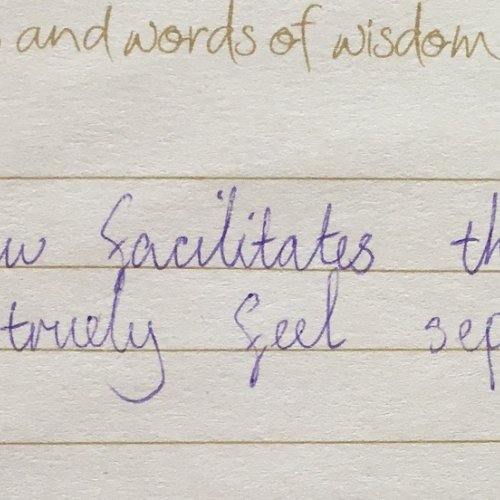 and words of wisdom
w facilitates th
truely feel sep